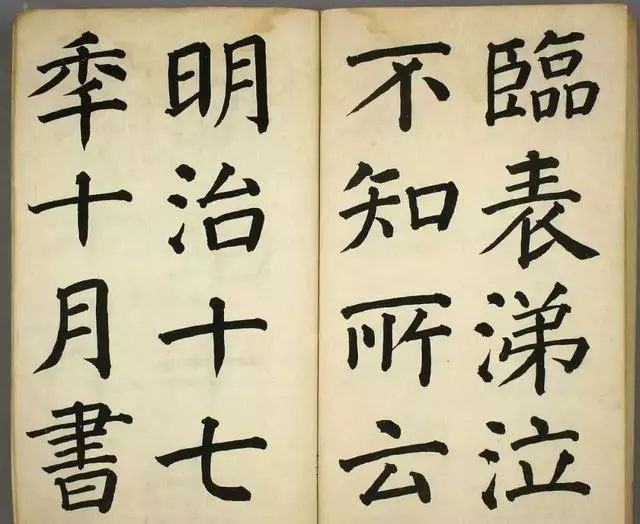 臨表涕泣
不知所云
明治十七
秊十月書